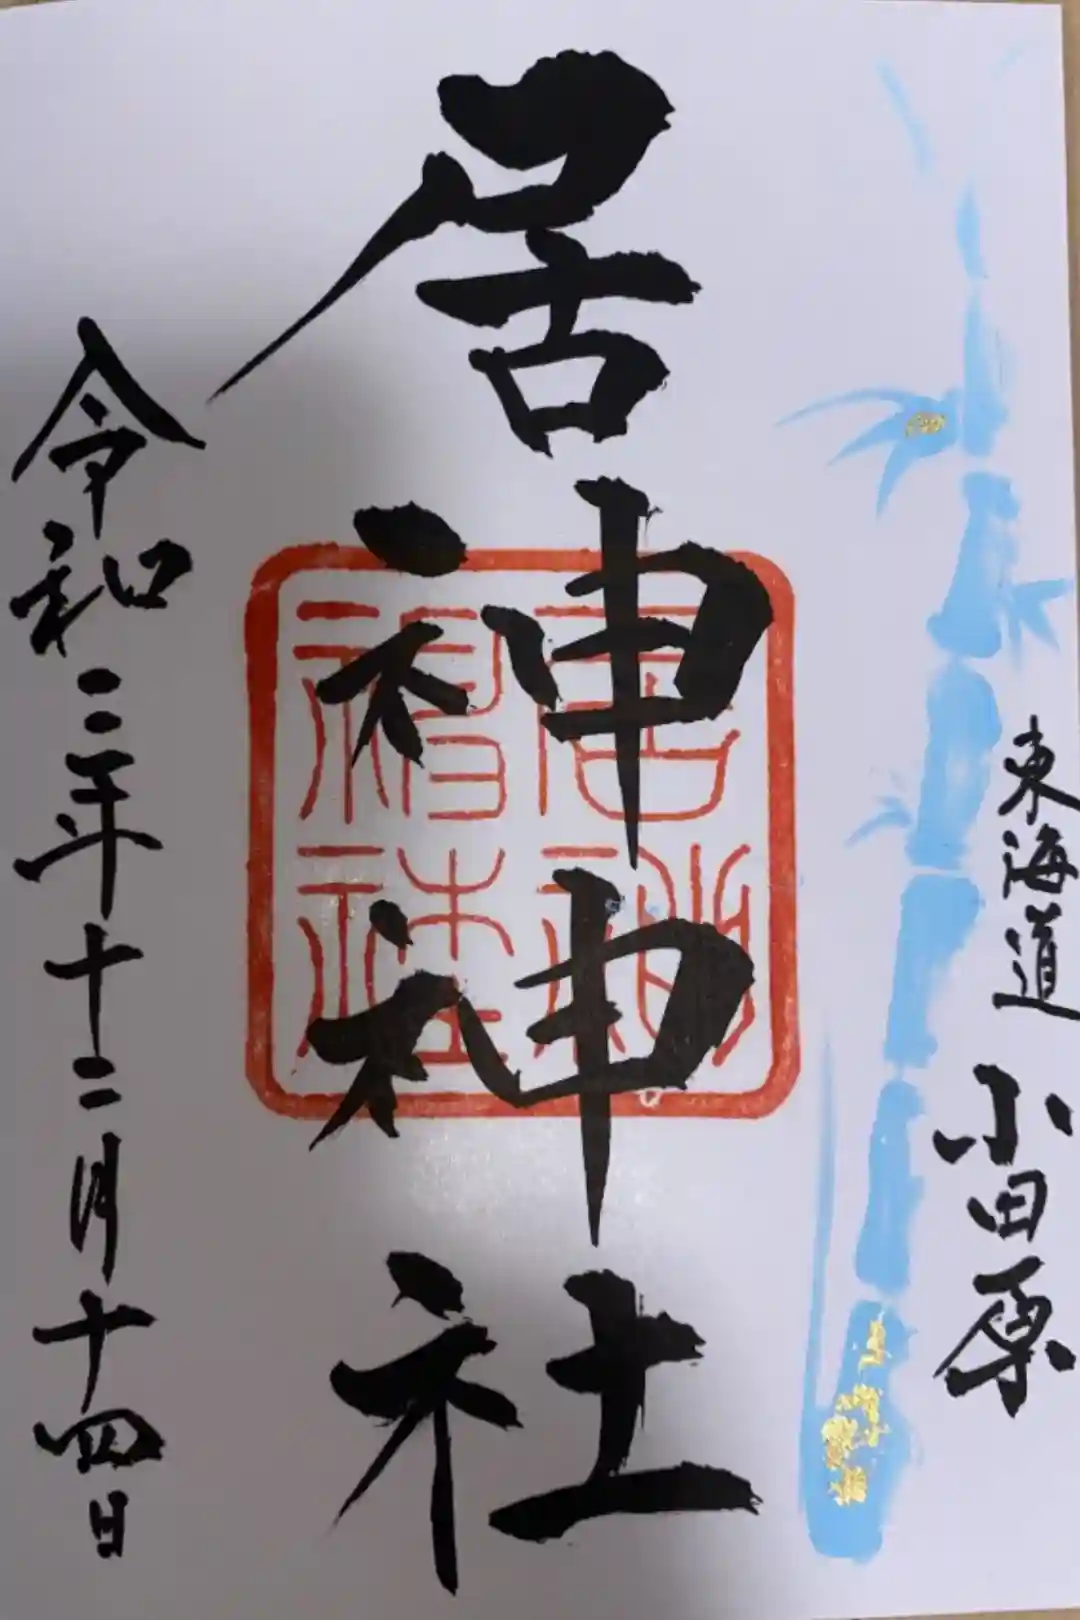 東海道 小田原
居神神社
居神
神社
令和三年十二月十四日